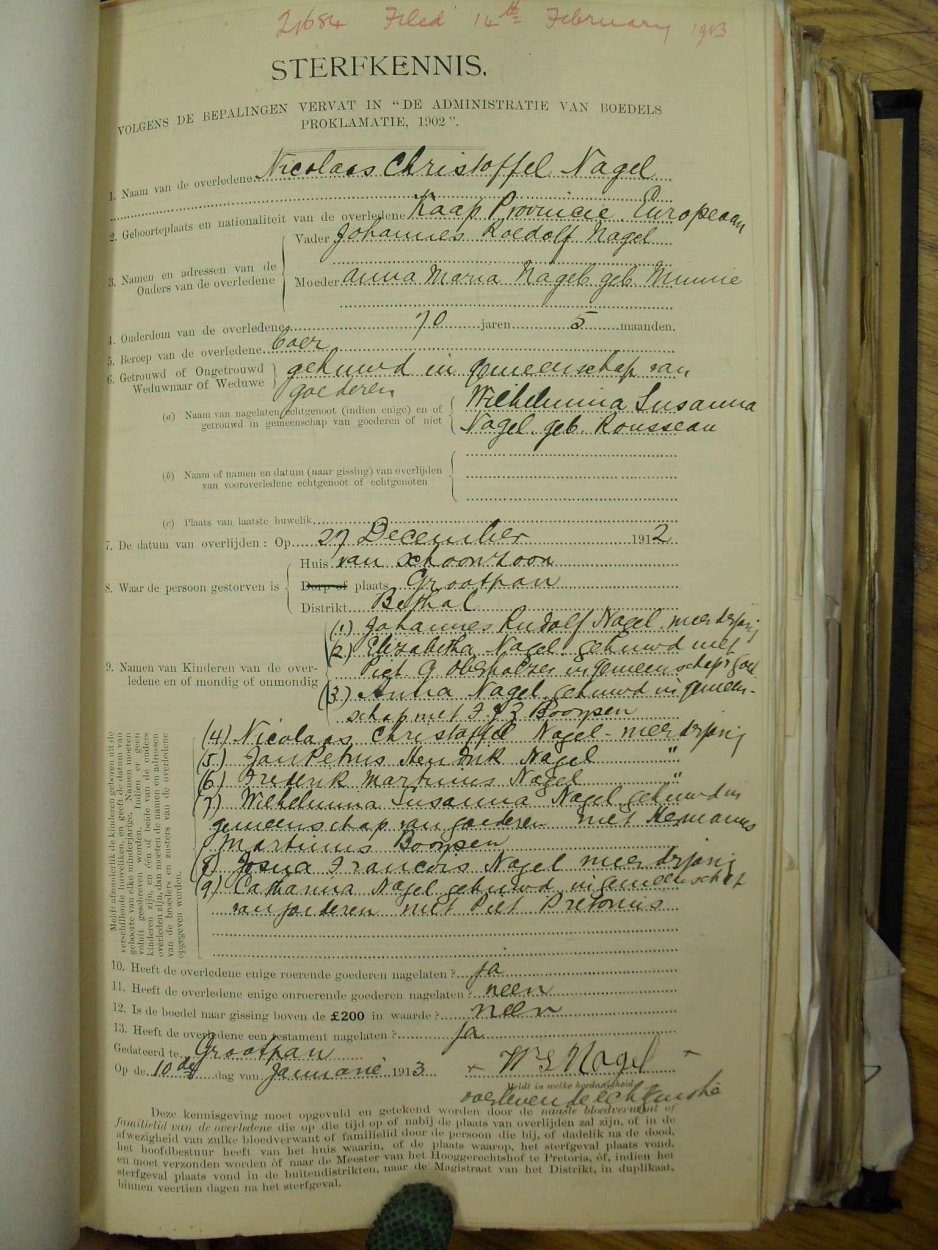 21684 Filed 14th February 1913
STERFKENNIS.
VOLGENS DE BEPALINGEN VERVAT IN "DE ADMINISTRATIE VAN BOEDELS
PROKLAMATIE, 1902".
1. Naam van de overledene Nicolaas Christoffel Nagel
2. Geboorteplaats en nationaliteit van de overledene Kaap Provincie Europeaan
3. Namen en adressen van de Ouders van de overledene
Vader Johannes Roedolf Nagel
Moeder Anna Maria Nagel geb. Minnie
4. Ouderdom van de overledene 70 jaren 5 maanden.
5. Beroep van de overledene Boer
6. Getrouwd of Ongetrouwd Weduwnaar of Weduwe
gehuwd in gemeenschap van
goederen
(a) Naam van nagelaten echtgenoot (indien enige) en of
getrouwd in gemeenschap van goederen of niet
Wilhelmina Susanna
Nagel geb. Rousseau
(b) Naam of namen en datum (naar gissing) van overlijden
van vooroverledene echtgenoot of echtgenoten
(c) Plaats van laatste huwelik
7. De datum van overlijden: Op 27 December 1912
8. Waar de persoon gestorven is
Huis van schoonzoon
Dorp of plaats Grootpan
Distrikt Bethal
9. Namen van Kinderen van de over-
ledene en of mondig of onmondig
(1) Johannes Rudolf Nagel meerderjarig
(2) Elizabetha Nagel gehuwd met
Piet G Oberholzer in gemeenschap v goed
(3) Anna Nagel gehuwd in gemeen-
schap met Booysen
(4) Nicolaas Christoffel Nagel - meerderjarig
(5) Jan Petrus Hendrik Nagel "
(6) Frederik Martinus Nagel "
(7) Wilhelmina Susanna Nagel gehuwd in
gemeenschap van goederen met Hermanus
Martinus Booysen
(8) Josua Francois Nagel meerderjarig
(9) Catharina Nagel gehuwd in gemeenschap
van goederen met Piet Pretorius
Meldt afzonderlik de kinderen geboren uit de
verschillende huweliken, en geeft de datum van
geboorte van elke minderjarige. Namen moeten
voluit geschreven worden. Indien er geen
kinderen zijn, en één of beide van de ouders
overleden zijn, dan moeten de namen en adressen
van de broeders en zusters van de overledene
opgegeven worden.
10. Heeft de overledene enige roerende goederen nagelaten? ja
11. Heeft de overledene enige onroerende goederen nagelaten? neen
12. Is de boedel naar gissing boven de £200 in waarde? neen
13. Heeft de overledene een testament nagelaten? ja
Gedateerd te Grootpan
Op de 10de dag van Januarie 1913
W S Nagel
Meldt in welke hoedanigheid
overlevende echtgenote
Deze kennisgeving moet opgevuld en getekend worden door de naaste bloedverwant of
familielid van de overledene die op die tijd op of nabij de plaats van overlijden zal zijn, of in de
afwezigheid van zulke bloedverwant of familielid door de persoon die bij, of dadelik na de dood,
het hoofdbestuur heeft van het huis waarin, of de plaats waarop, het sterfgeval plaats vond,
en moet verzonden worden óf naar de Meester van het Hooggerechtshof te Pretoria, óf, indien het
sterfgeval plaats vond in de buitendistrikten, naar de Magistraat van het Distrikt, in duplikaat,
binnen veertien dagen na het sterfgeval.